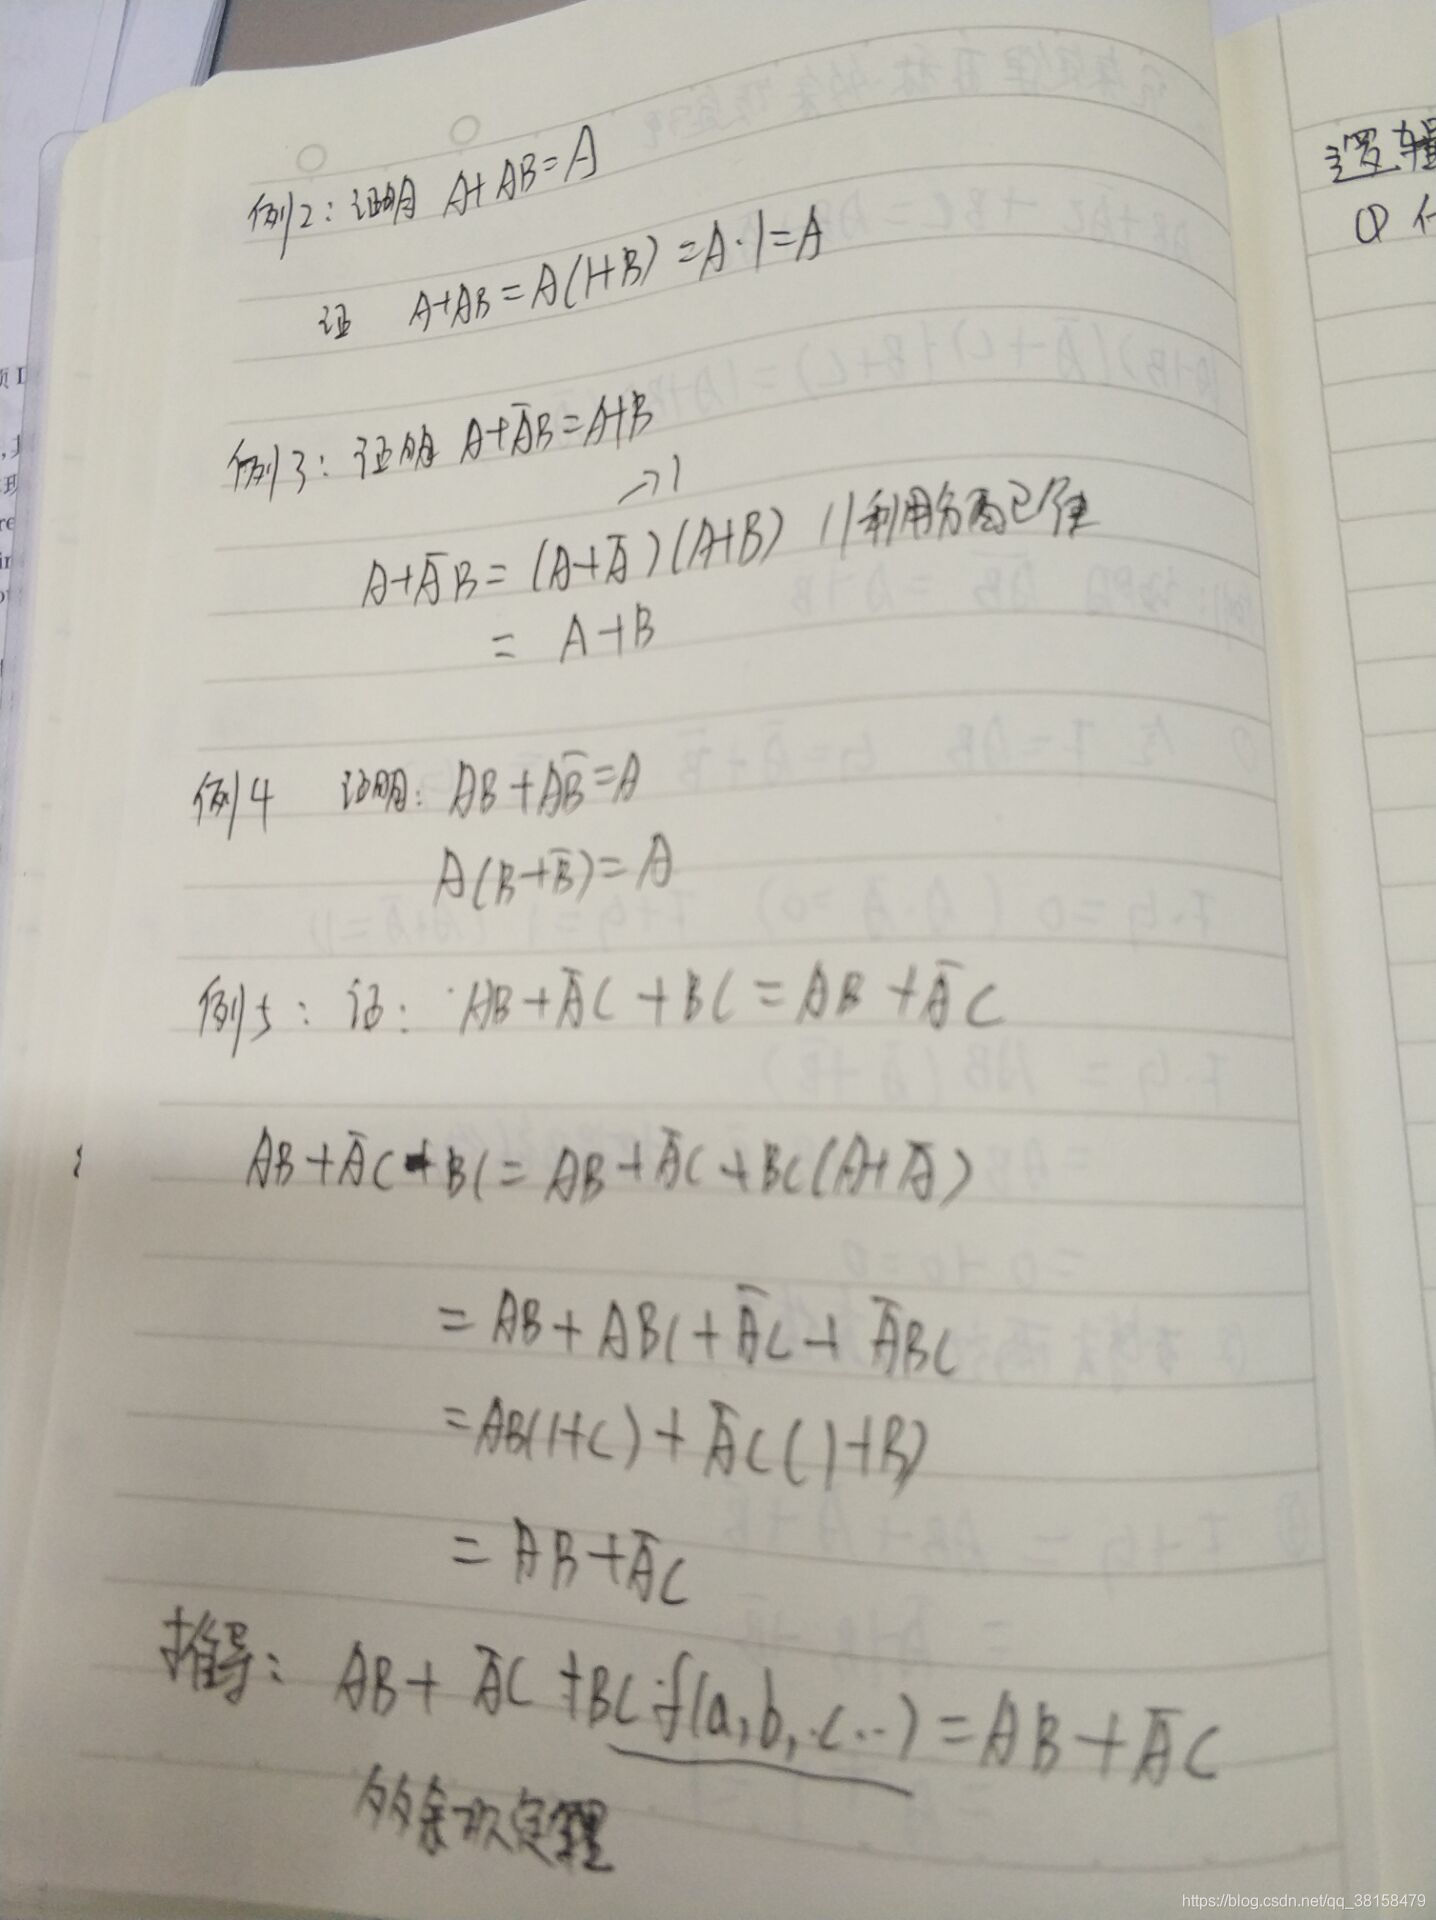 例2: 证明 A+AB=A
证 A+AB=A(1+B)=A·1=A
例3: 证明 A+A̅B=A+B
→1
A+A̅B=(A+A̅)(A+B) //利用分配律
= A+B
例4 证明: AB+AB̅=A
A(B+B̅)=A
例5: 证: AB+A̅C+BC=AB+A̅C
AB+A̅C+BC=AB+A̅C+BC(A+A̅)
=AB+ABC+A̅C+A̅BC
=AB(1+C)+A̅C(1+B)
=AB+A̅C
推导: AB+A̅C+BC·f(a,b,c…)=AB+A̅C
多余项定理
逻辑
①
https://blog.csdn.net/qq_38158479